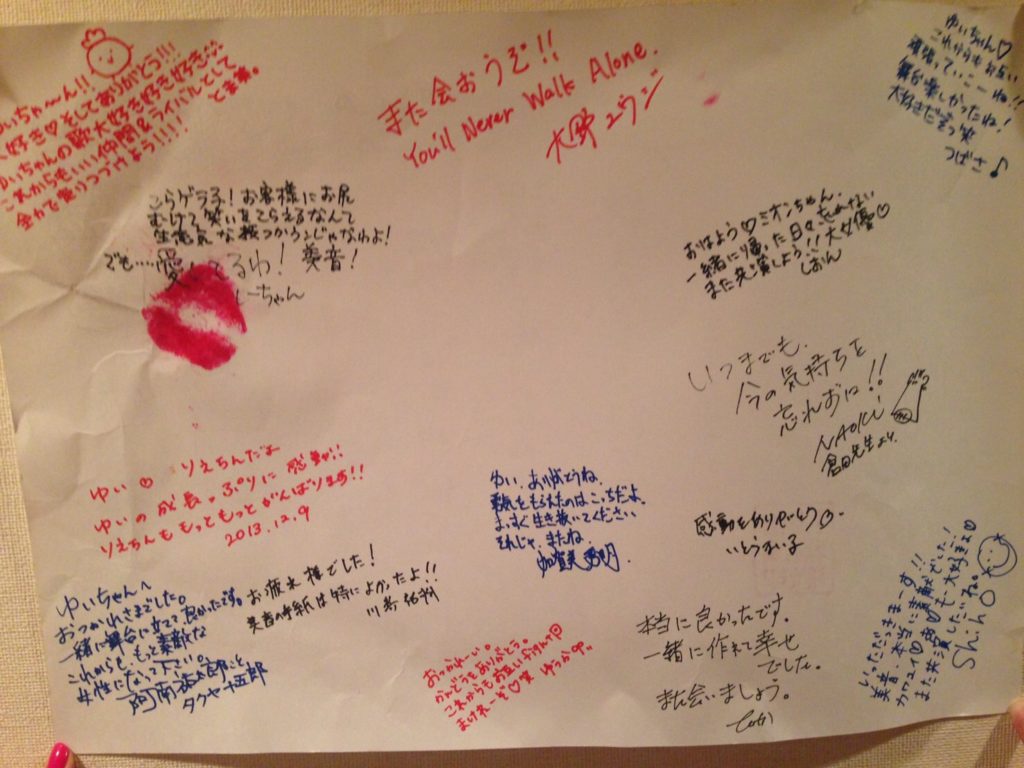 ゆいちゃ〜ん!!
大好き♡そしてありがとう!!!
ゆいちゃんの歌大好き好き好き
これからもいい仲間&ライバルとして
全力で走りつづけよう!!!!!
また会おうぜ!!
You'll Never Walk Alone.
大野ユウジ
ゆいちゃん♡
これからもお互い
頑張っていこーね!!
舞台楽しかったね!
大好きだぞっ笑
つばさ♪
こらゲラ子!お客様にお尻
むけて笑いこらえるなんて
生意気な技つかうンじゃなわよ!
でも……愛してるわ!美音!
しーちゃん
おはよう♡ミオンちゃん。
一緒に帰った日々忘れない
また共演しよう!!大女優♡
しおん
いつまでも、
今の気持ちを
忘れずに!!
NAOKi
倉田先生より
ゆい♡ りえちんだよ
ゆいの成長っぷりに感動!!
りえちんももっともっとがんばります!!
2013.12.9
ゆい、ありがとうね。
勇気をもらえたのはこっちだよ。
まっすぐ生き抜いてください
それじゃ、またね。
感動をありがとう♡
ゆいちゃんへ
おつかれさまでした。
一緒に舞台に立てて良かったです。
これからも、もっと素敵な
女性になって下さい。
タクヤ十五郎
お疲れ様でした!
美音の手紙は特によかったよ!!
おっかれーい。
がっどうをありがとう。
これからもお互い
まけねーぞ♡笑 ゆうか
本当に良かったです。
一緒に作れて幸せ
でした。
また会いましょう。
いただっきまーす!!
美音、本当に素敵でした!
カワユイ♡
また共演したいね
Shiho